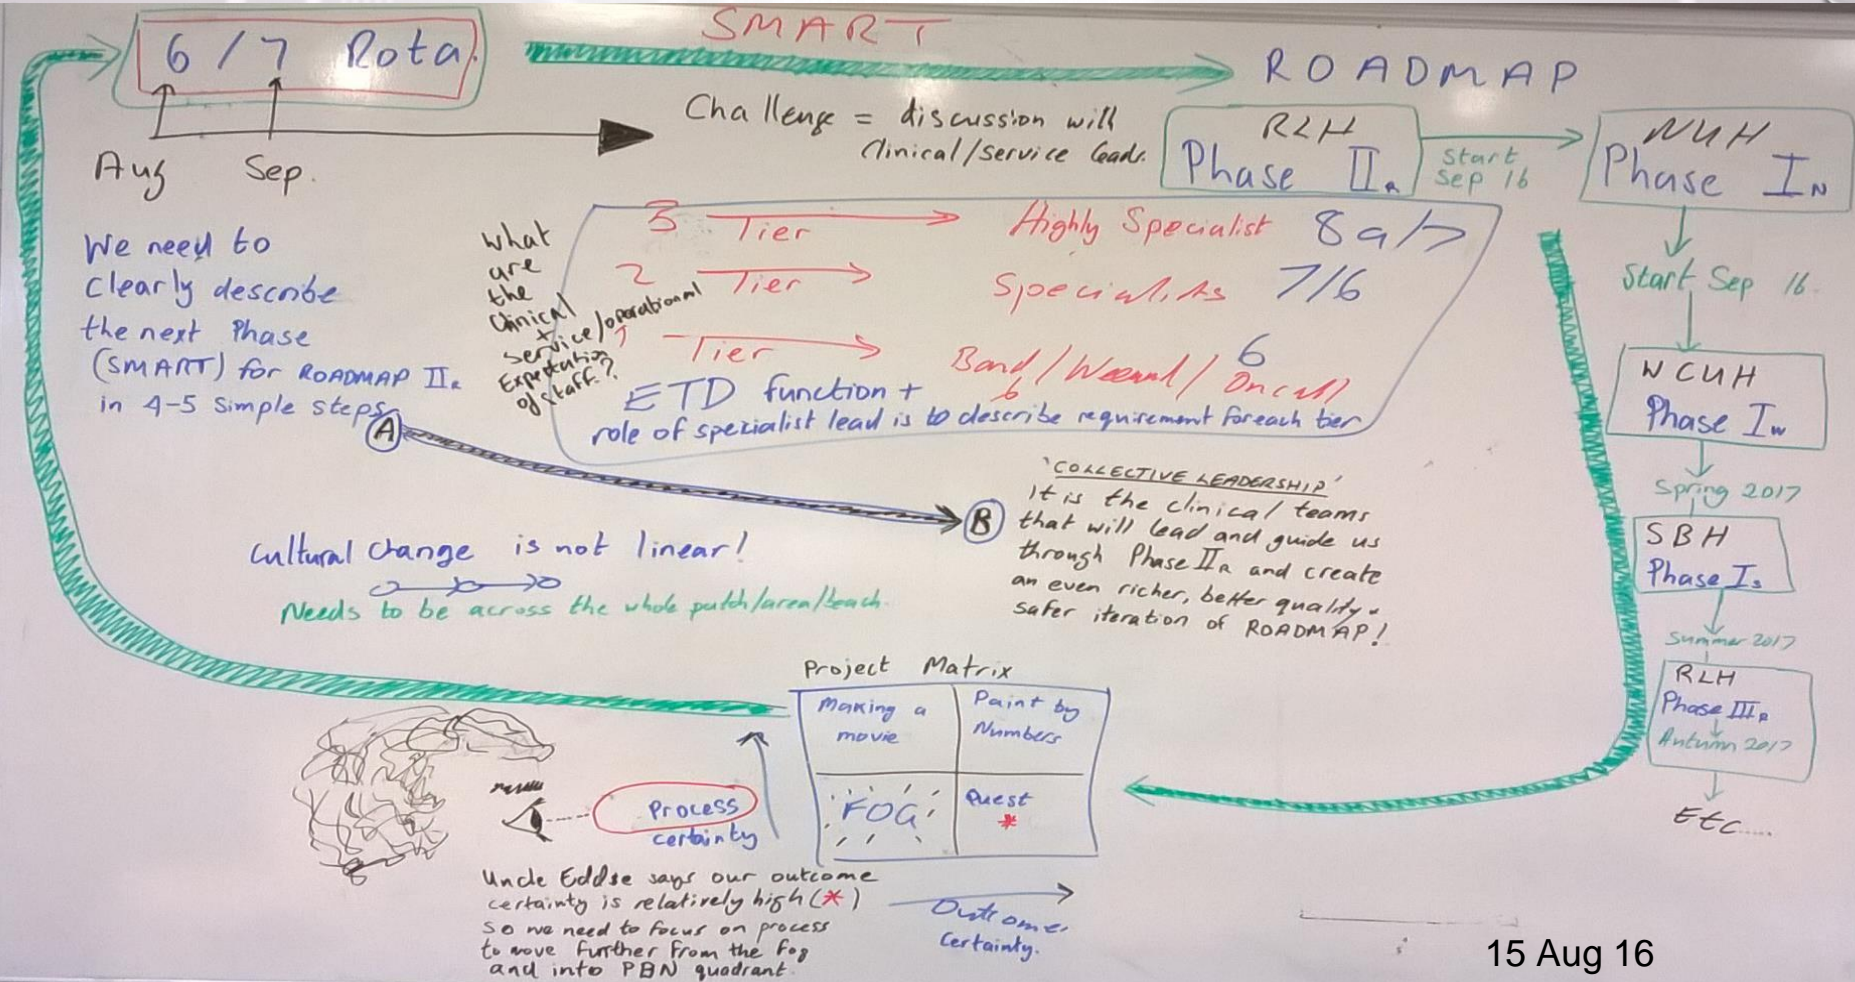 SMART
6/7 Rota
ROADMAP
Aug Sep.
Challenge = discussion with
Clinical/Service leads.
RLH
Phase IIR
Start
Sep 16
NUH
Phase IN
Start Sep 16
WCUH
Phase Iw
Spring 2017
SBH
Phase Is
Summer 2017
RLH
Phase IIIR
Autumn 2017
Etc.....
We need to
clearly describe
the next Phase
(SMART) for ROADMAP IIR
in 4-5 simple steps
A
What
are
the
Clinical
+
service/operational
Expectations
of staff?
3 Tier Highly Specialist 8a/7
2 Tier Specialists 7/6
1 Tier Band 6/Weekend/Oncall
6
ETD function +
role of specialist lead is to describe requirement for each tier
B
'COLLECTIVE LEADERSHIP'
it is the clinical teams
that will lead and guide us
through Phase IIR and create
an even richer, better quality +
safer iteration of ROADMAP!
Cultural Change is not linear!
Needs to be across the whole patch/area/beach.
Project Matrix
Making a
movie
Paint by
Numbers
FOG
Quest
*
Process
certainty
Outcome
Certainty.
Uncle Eddie says our outcome
certainty is relatively high (*)
so we need to focus on process
to move further from the fog
and into PBN quadrant.
15 Aug 16